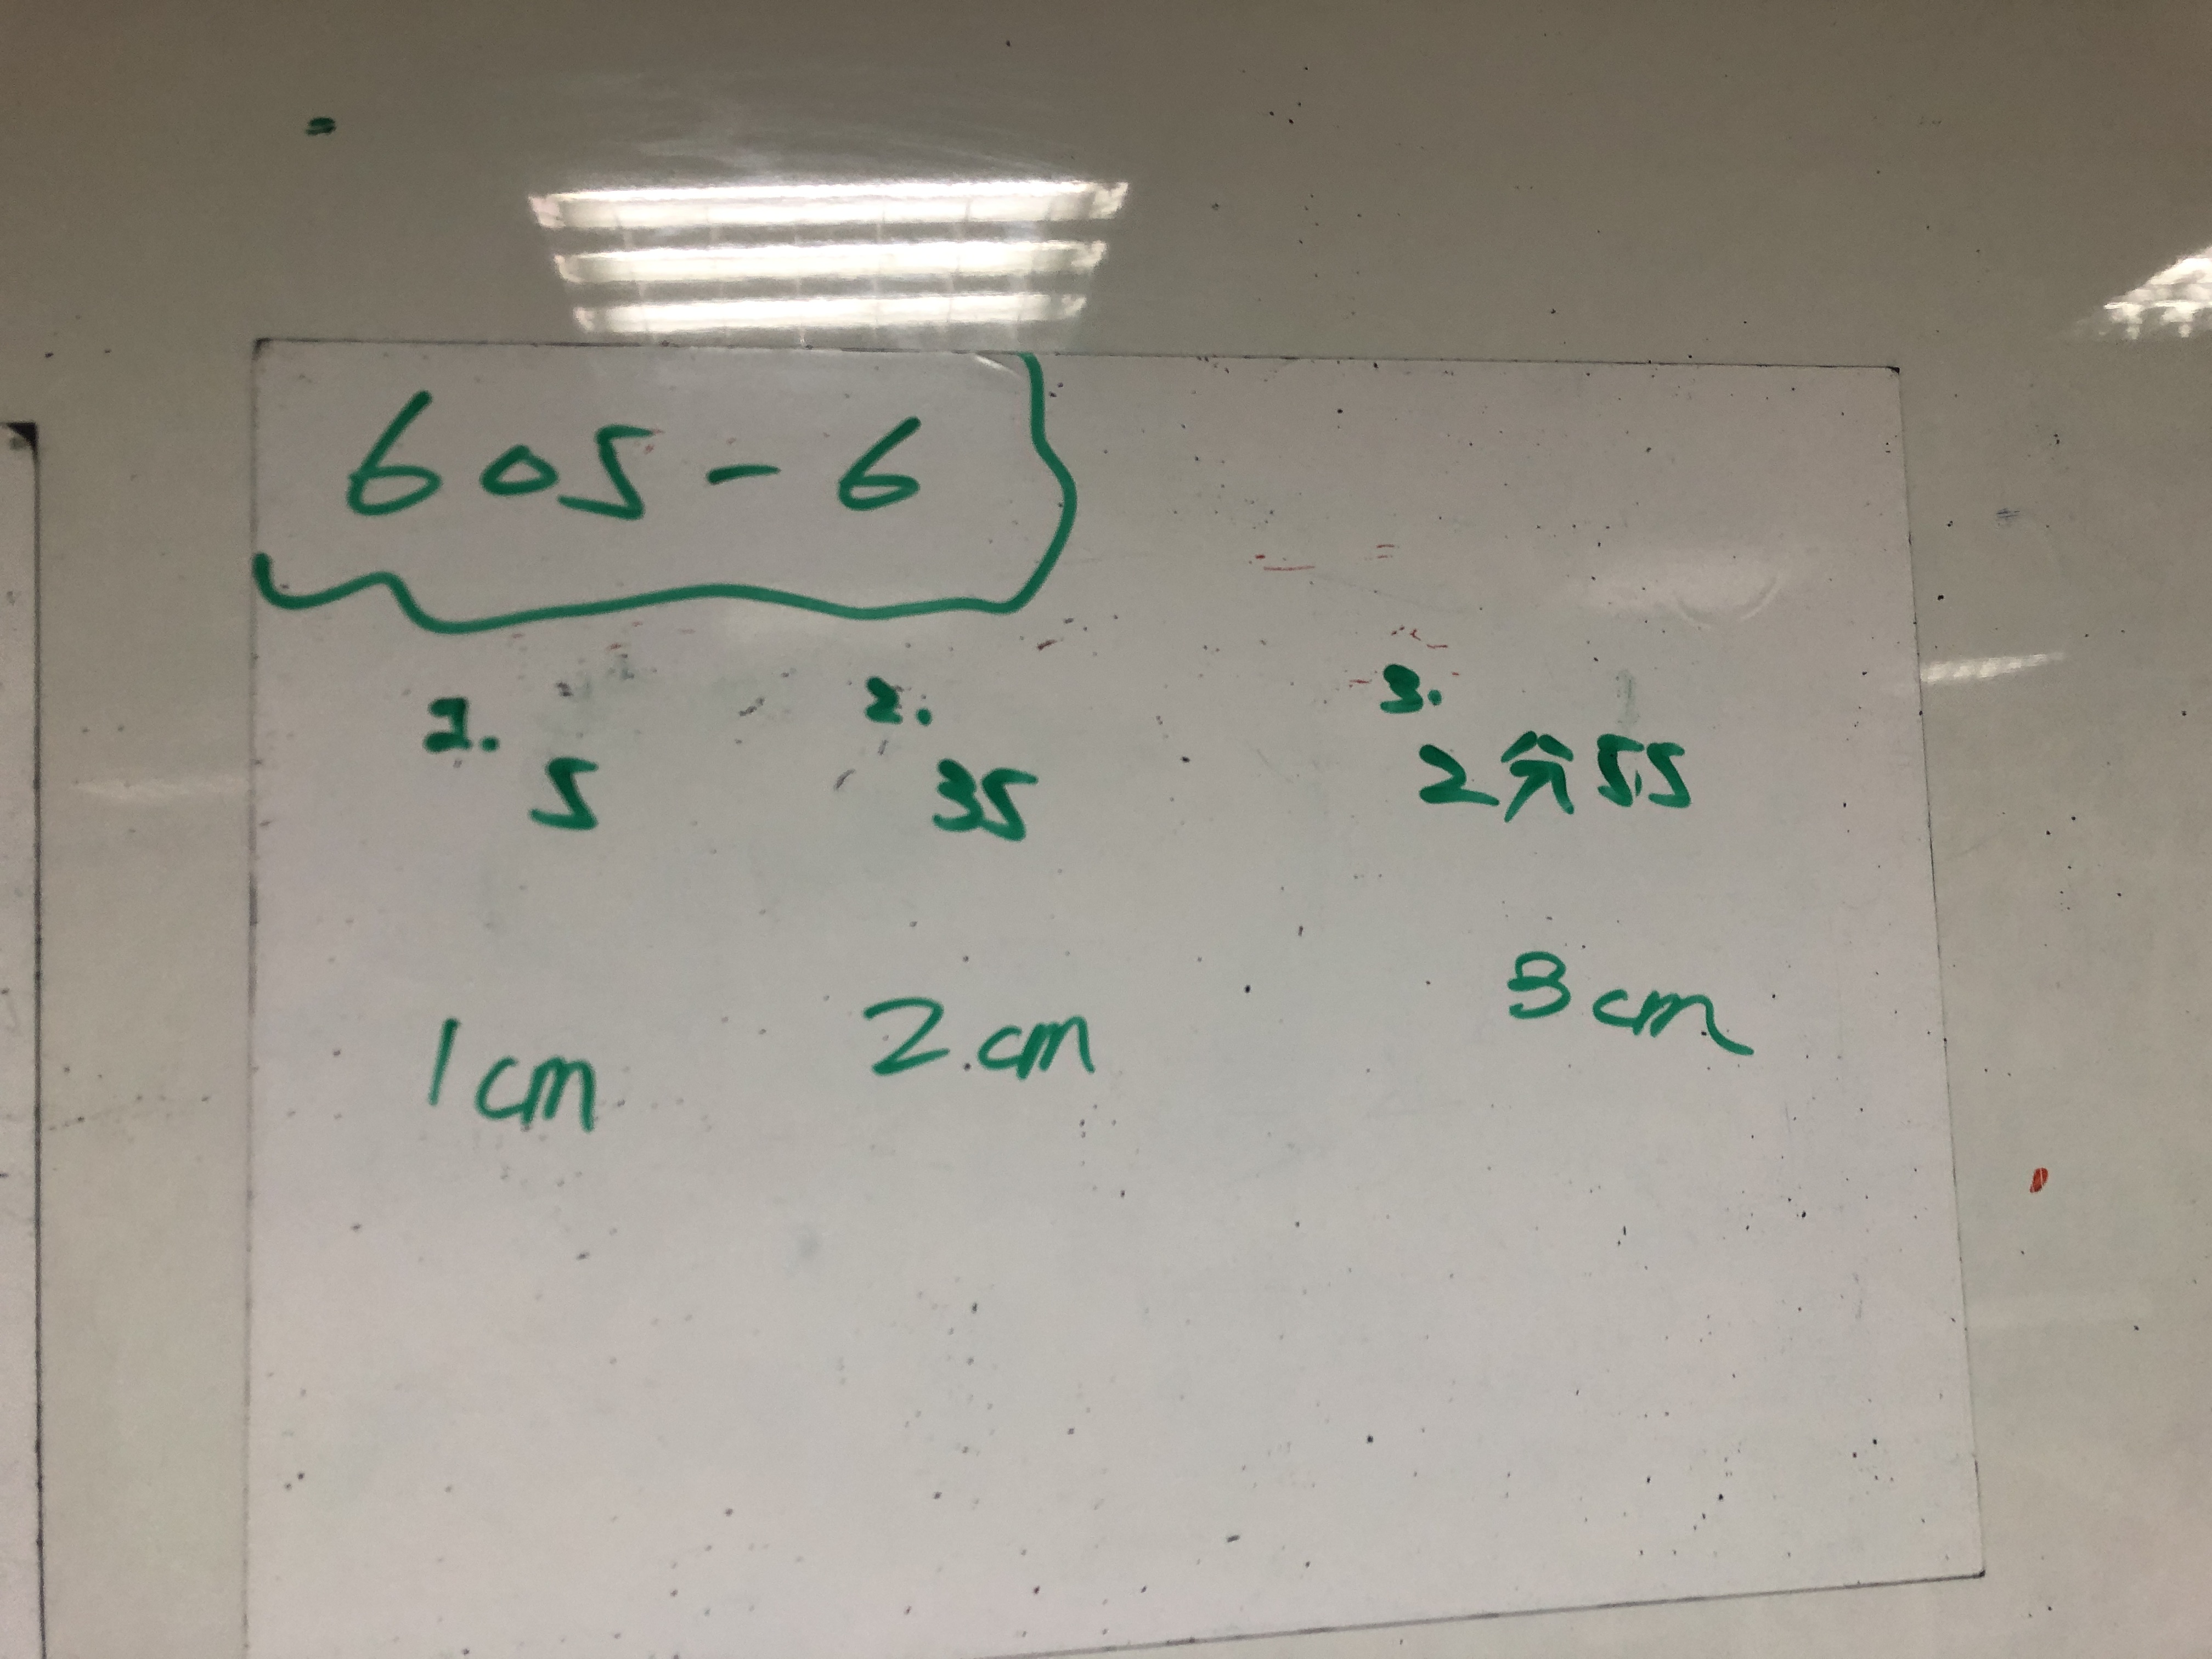 605-6
1. 2. 3.
5 35 2分55
1cm 2cm 3cm